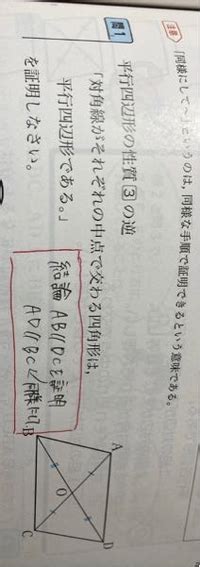 注意
「同様にして〜」というのは，同様な手順で証明できるという意味である。
問1
平行四辺形の性質3の逆
「対角線がそれぞれの中点で交わる四角形は，
平行四辺形である。」
を証明しなさい。
結論 AB//DCを証明
AD//BCは同様だから
A
D
O
B
C